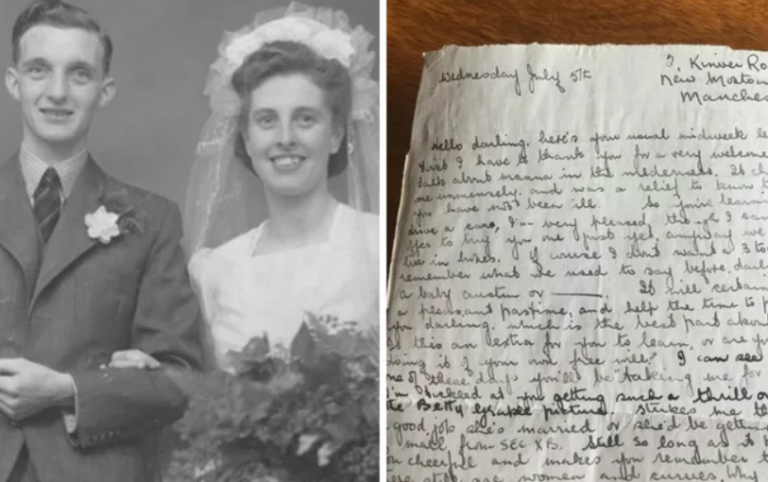 Wednesday July 5th
7, Kinver Ro
New Moston
Manches
Hello darling. here's your usual midweek le
First I have to thank you for a very welcome
talk about manna in the wilderness. It ch
me immensely and was a relief to know t
you have not been ill. So you're learni
drive a
I'm very pleased, though I can
yet, anyway we
live in hopes. Of course I don't want a 3 to
remember what we used to say before, darli
a baby austin or ———. It will certain
a pleasant pastime, and help the time to p
you darling. which is the best part abou
Is this an extra for you to learn, or are yo
doing it of your own free will? I can see
one of these days you'll be taking me for
I'm tickled at you getting such a thrill o
the Betty Grable picture. Strikes me t
good job she's married or she'd be getti
mail from SEC XB. Still so long as it k
you cheerful and makes you remember t
there still are women and curves. Why